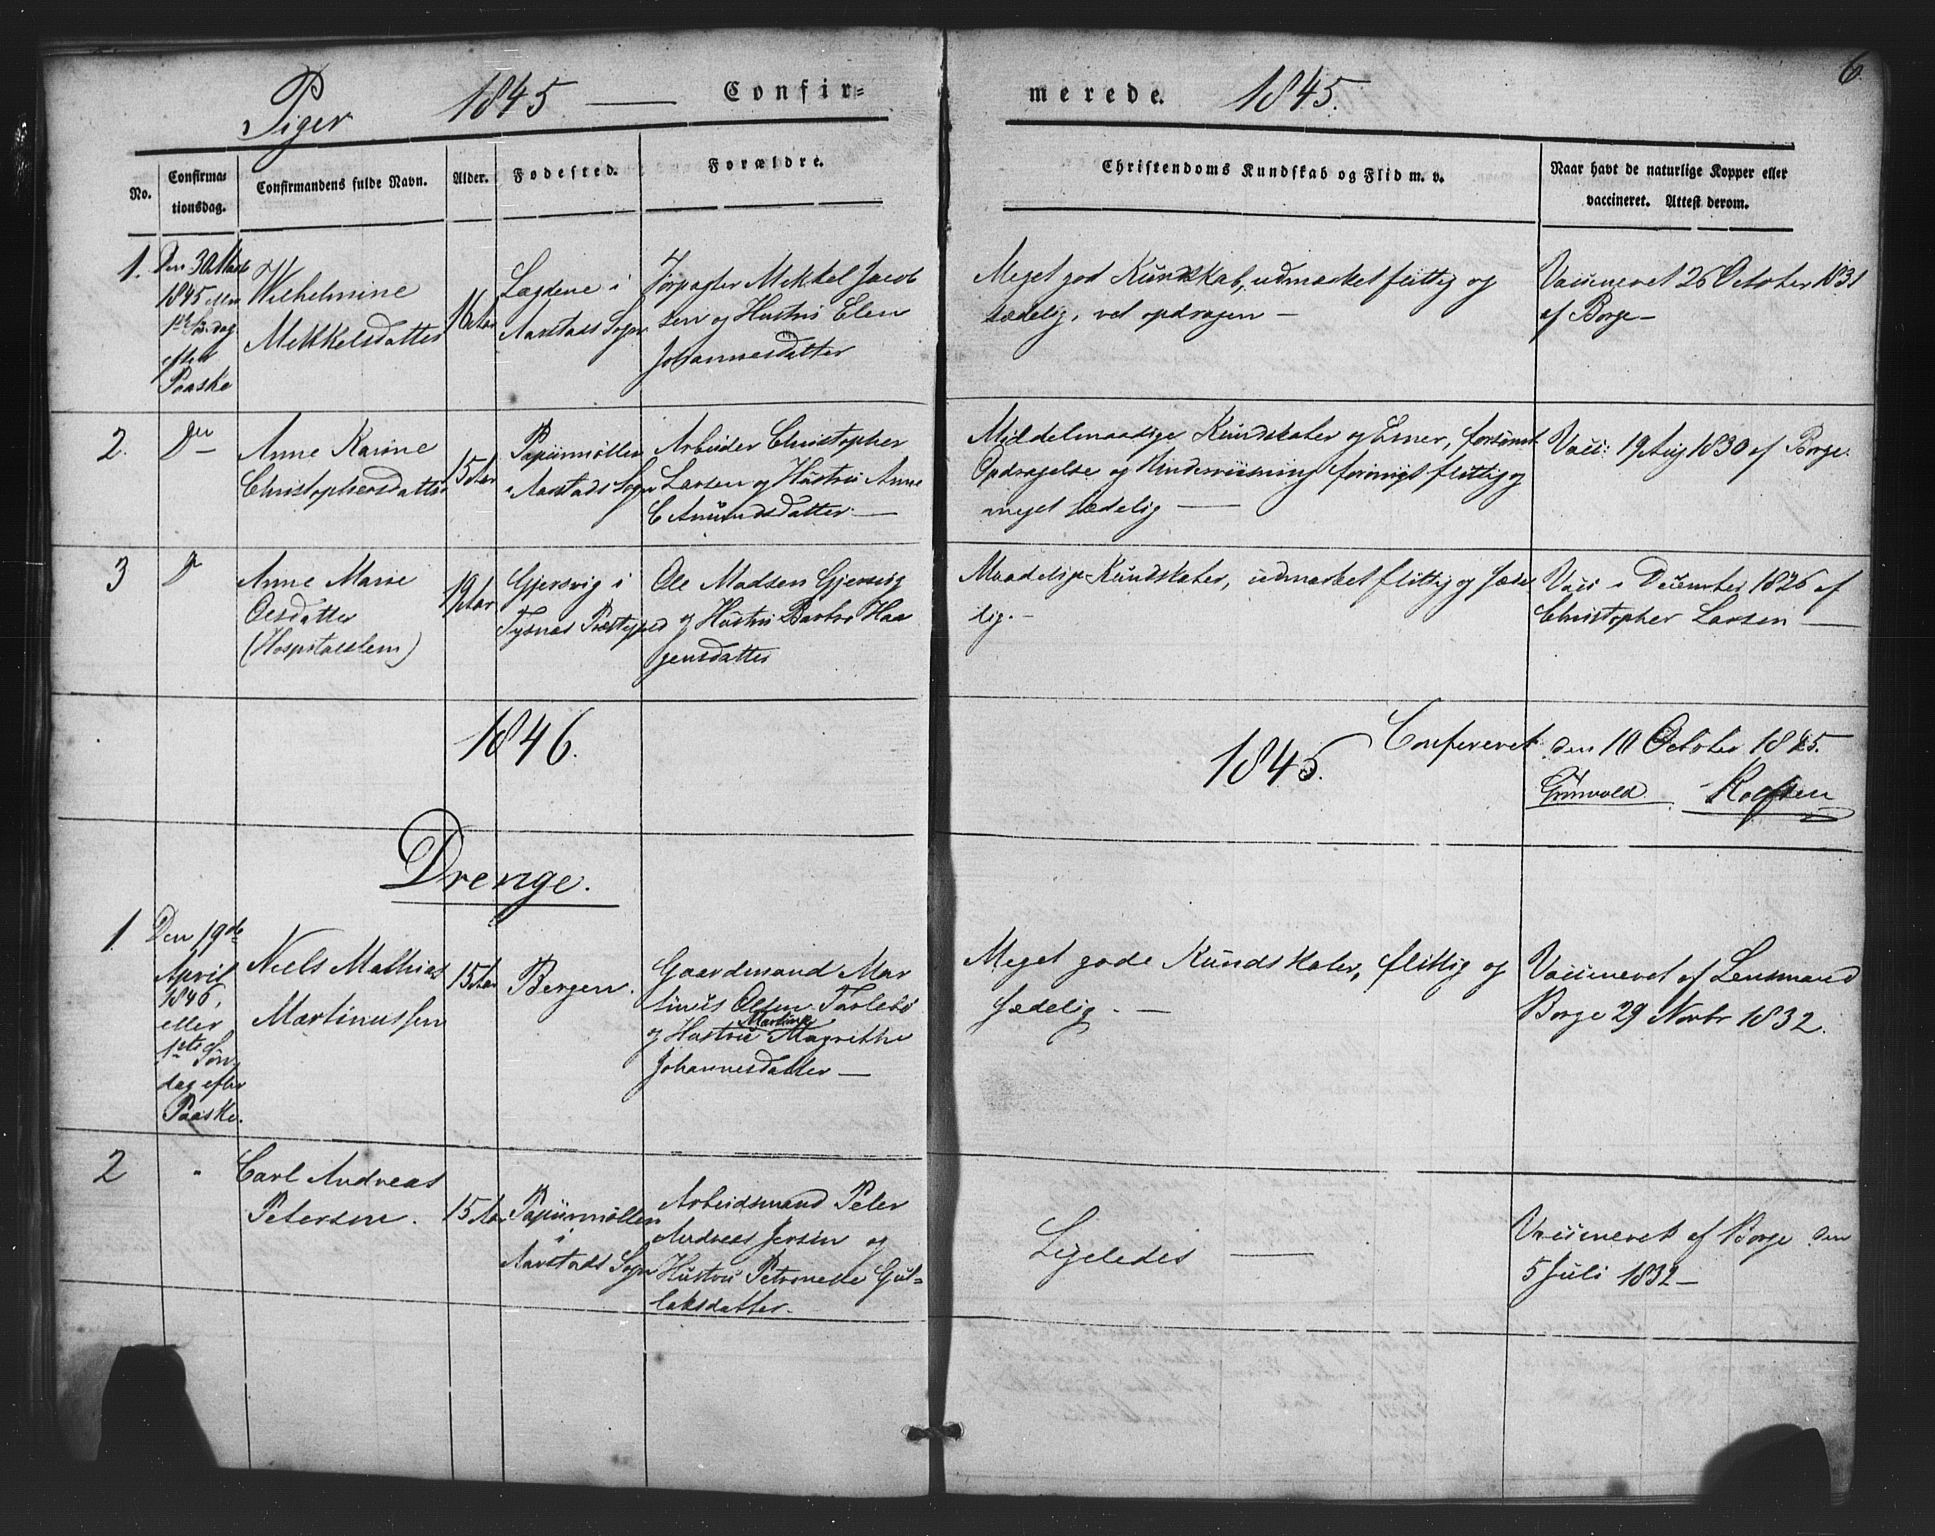 6.
Piger 1845 — Confir=
merede. 1845.
No.
Confirma=
tionsdag.
Confirmandens fulde Navn.
Alder.
Fødested.
Forældre.
Christendoms Kundskab og Flid m. v.
Naar havt de naturlige Kopper eller
vaccineret. Attest derom.
1.
Den 30
1845
efter
Paaske
Wilhelmine
Mekkelsdatter
16 Aar
Lægdene i
Aarstads Sogn
Forpagter Mekkel Jacob
sen og Hustru Elen
Johannesdatter
Meget god Kundskab, udmærket flittig og
sædelig, vel opdragen —
Vaccineret 26 October 1831
af Borge —
2.
Do —
Anne Karine
Christophersdatter
15 Aar
Papiirmøllen
i Aarstads Sogn
Arbeider Christopher
Larsen og Hustru Anne
C Amundsdatter —
Middelmaadige Kundskaber og Evner, forsømt
Opdragelse og Underviisning forøvrigt flittig og
meget sædelig —
Vacc: 19 Aug 1830 af Borge.
3
Do
Anne Marie
Olsdatter
(Hospitalslem)
19 Aar
Gjersvig i
Tysnæs Præstegjeld
Ole Madsen Gjersvig
og Hustru Barbro Haa
gensdatter
Maadelige Kundskaber, udmærket flittig og sæde
lig. —
Vacc i December 1826 af
Christopher Larsen —
1846.
1845.
Confereret den 10 October 1845.
Grunvold Rolfsen
Drenge.
1.
Den 19de
April
1846,
eller
1ste Søn
dag efter
Paaske.
Niels Mathias
Martinussen
15 Aar
Bergen.
Gaardmand Mar
tinus Olsen Tarlebø
Martine
og Hustru Magrethe
Johannesdatter —
Meget gode Kundskaber, flittig og
sædelig. —
Vaccineret af Lensmand
Borge 29 Novbr 1832.
2
"
Carl Andreas
Petersen.
15 Aar
Papiirmøllen
i
Aarstads Sogn
Arbeidsmand Peter
Andreas Jersin og
Hustru Petronelle Gul-
laksdatter.
Ligeledes —
Vaccineret af Borge den
5 Juli 1832 —